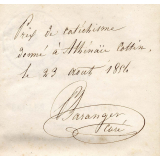 Prix de catéchisme
donné à Albinaïs Cottin,
le 29 août 1886
Baranger
Curé